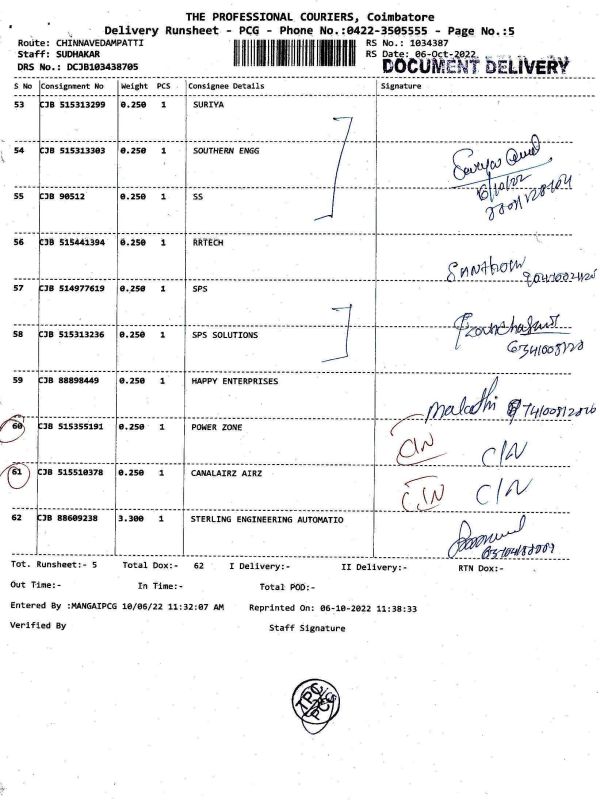 THE PROFESSIONAL COURIERS, Coimbatore
Delivery Runsheet - PCG - Phone No.:0422-3505555 - Page No.:5
Route: CHINNAVEDAMPATTI RS No.: 1034387
Staff: SUDHAKAR RS Date: 06-Oct-2022
DRS No.: DCJB103438705 DOCUMENT DELIVERY
S No Consignment No Weight PCS Consignee Details Signature
53 CJB 515313299 0.250 1 SURIYA
54 CJB 515313303 0.250 1 SOUTHERN ENGG
55 CJB 90512 0.250 1 SS
56 CJB 515441394 0.250 1 RRTECH
57 CJB 514977619 0.250 1 SPS
58 CJB 515313236 0.250 1 SPS SOLUTIONS
59 CJB 88898449 0.250 1 HAPPY ENTERPRISES
Malathi
60 CJB 515355191 0.250 1 POWER ZONE C/N C/N
61 CJB 515510378 0.250 1 CANALAIRZ AIRZ C/N C/N
62 CJB 88609238 3.300 1 STERLING ENGINEERING AUTOMATIO
Tot. Runsheet:- 5 Total Dox:- 62 I Delivery:- II Delivery:- RTN Dox:-
Out Time:- In Time:- Total POD:-
Entered By :MANGAIPCG 10/06/22 11:32:07 AM Reprinted On: 06-10-2022 11:38:33
Verified By Staff Signature
TPC
PCG